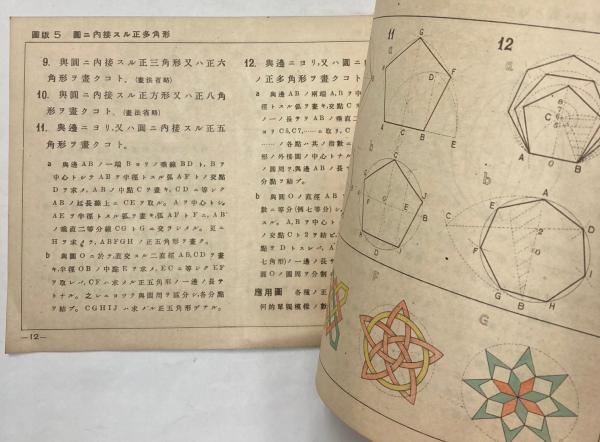 圖版 5 圓ニ內接スル正多角形
9. 與圓ニ內接スル正三角形又ハ正六
角形ヲ畫クコト。(畫法省略)
10. 與圓ニ內接スル正方形又ハ正八角
形ヲ畫クコト。(畫法省略)
11. 與邊ニヨリ、又ハ圓ニ內接スル正五
角形ヲ畫クコト。
a 與邊ABノ一端Bヨリノ垂線BDト、Bヲ
中心トシテABヲ半徑トスル弧AFトノ交點
Dヲ求メ、ABノ中點Cヲ畫キ、CDニ等シク
ABノ延長線上ニCEヲ取ル。Aヲ中心トシ、
AEヲ半徑トスル弧ヲ畫キ、弧AFトFニ、AB
ノ垂直二等分線CGトGニ交ラシメル。更ニ
Hヲ求メ、ABFGHノ正五角形ヲ畫ク。
b 與圓Oニ於テ、直交スル二直徑AB, CDヲ畫
キ、半徑OBノ中點Eヲ求メ、ECニ等シクEF
ヲ取レバ、CFハ求メル正五角形ノ一邊ノ長サ
トナル。之レニヨツテ與圓周ヲ區分シ、各分點
ヲ結ブ。CGHIJハ求メル正五角形デアル。
12. 與邊ニヨリ、又ハ圓ニ
ノ正多角形ヲ畫クコト
a 與邊ABノ兩端A, Bヲ中
徑トスル弧ヲ畫キ、交點C
ノ一ノ長サ
ヨリC5, C7,……ニ取リ、C
……ノ各點ハ其ノ指數ニ
形ノ外接圓ノ中心トナル
ノ圓周ヲ、與邊ABノ長サ
分點ヲ結ブ。
b 與圓Oノ直徑AB
數ニ等分(例七等分)シ
ル。A, Bヲ中心トシ
ノ交點Cト2ヲ結ビ
點ヲDトスレバ、A
七角形)ノ一邊ノ長サ
圓Oノ圓周ヲ分割
應用圖 各種ノ正
何的單獨模樣ノ數
—12—
11
a
G
H
D
F
A
C
B
E
b
C
J
B
12
a
8
7
6
C
A
O
B
b
A
C
D
2
O
E
F
G
B
H
I
F
G